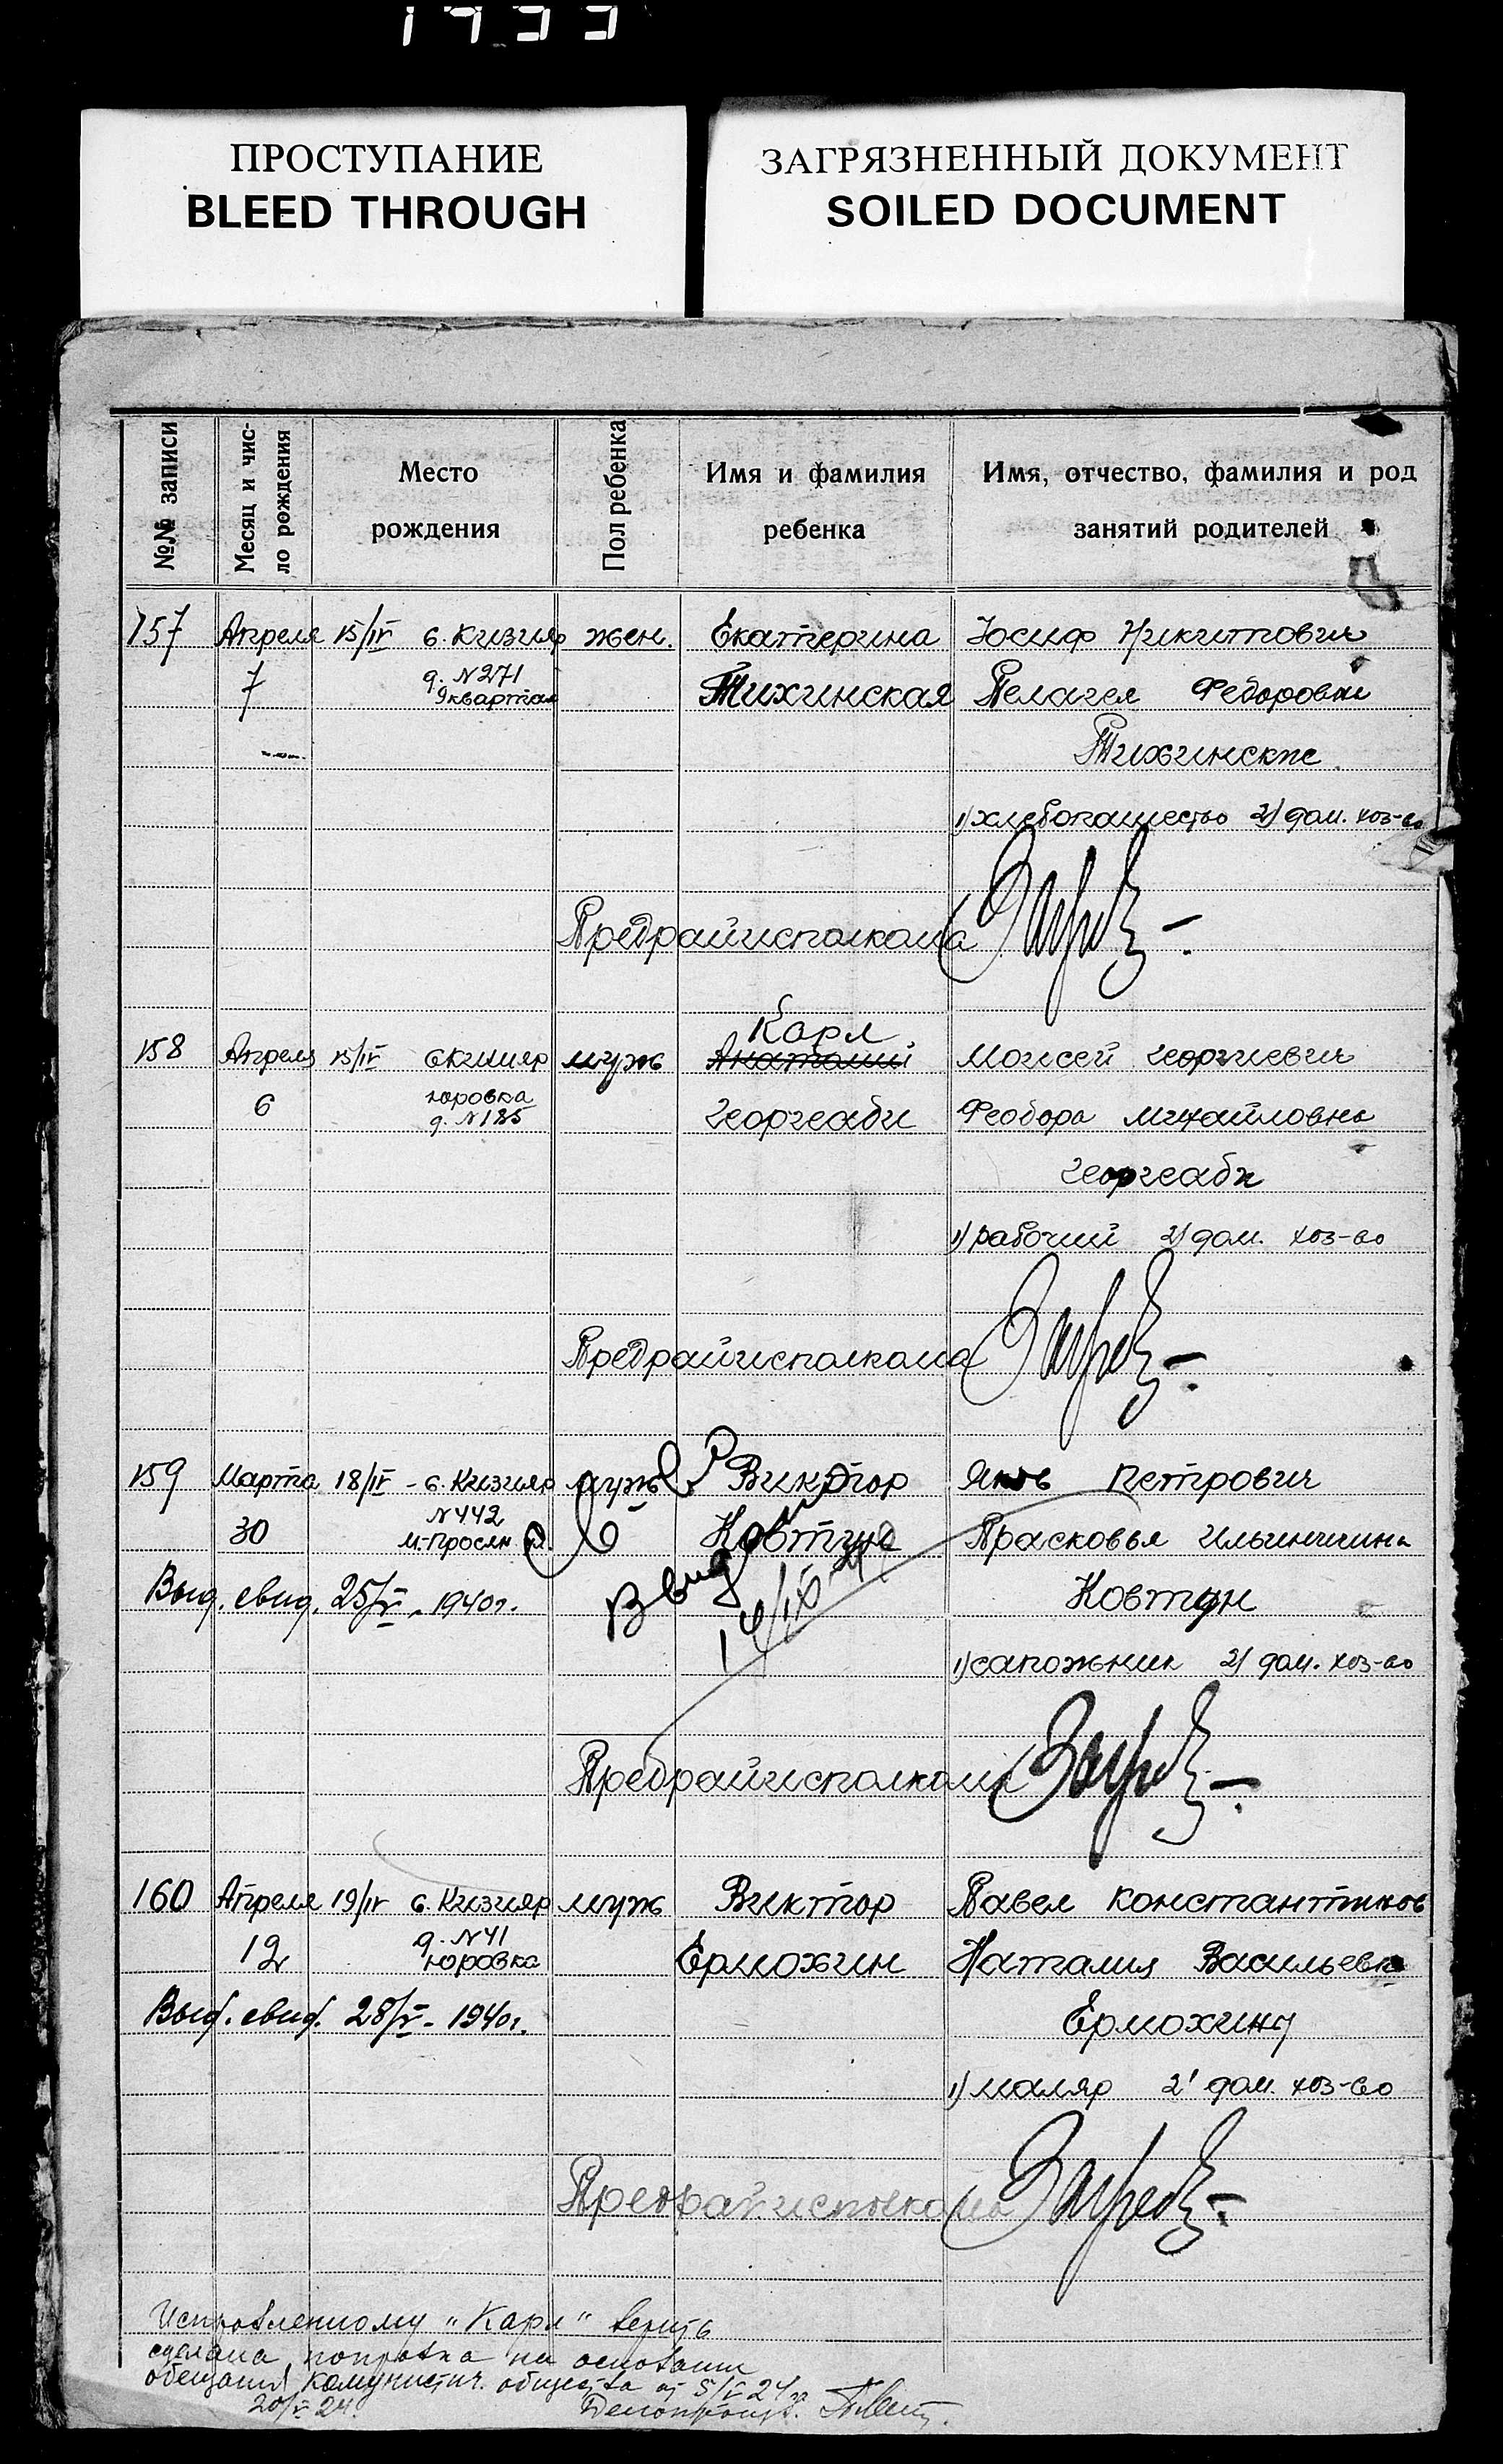 1933
ПРОСТУПАНИЕ
BLEED THROUGH
ЗАГРЯЗНЕННЫЙ ДОКУМЕНТ
SOILED DOCUMENT
№№ записи
Месяц и чис-
ло рождения
Место
рождения
Пол ребенка
Имя и фамилия
ребенка
Имя, отчество, фамилия и род
занятий родителей
157 Апреля 15/IV б. Кизияр жен. Екатерина Иосиф Никитович
7 д. N271 Тихинская Пелагея Федоровна
9 квартал
Тихинские
1) хлебопашество 2) дом. хоз-во
Предрайисполкома
Карл
158 Апреля 15/IV б Кизияр муж Анатолий Моисей Георгиевич
6 Юровка Георгеаби Феодора Михайловна
д. N185
Георгеаби
1) рабочий 2) дом. хоз-во
Предрайисполкома
159 Марта 18/IV - б. Кизияр муж Виктор Яков Петрович
30 N442 Ковтун Прасковья Ильинична
М-Просян
Выд. свид. 25/V - 1940г. Ковтун
1) сапожник 2) дом. хоз-во
Предрайисполкома
160 Апреля 19/IV б. Кизияр муж Виктор Павел Константинов
12 д. N41 Ермохин Наталия Васильевна
Юровка
Выд. свид. 28/V - 1940г. Ермохины
1) маляр 2) дом. хоз-во
Предрайисполкома
Исправленному "Карл" верить
сделана поправка на основании
общества от 5/V 24 г.
20/V 24.